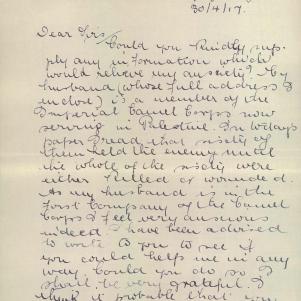 30/4/17.
Dear Sirs
Could you kindly sup
ply any information which
would relieve my anxiety? My
husband (whose full address I
enclose) is a member of the
Imperial Camel Corps now
serving in Palestine. In todays
paper I read that sixty of
them held the enemy until
the whole of the sixty were
either killed or wounded.
As my husband is in the
First Company of the Camel
Corps I feel very anxious
indeed. I have been advised
to write to you to see if
you could help me in any
way. Could you do so I
shall be very grateful. I
think it probable that